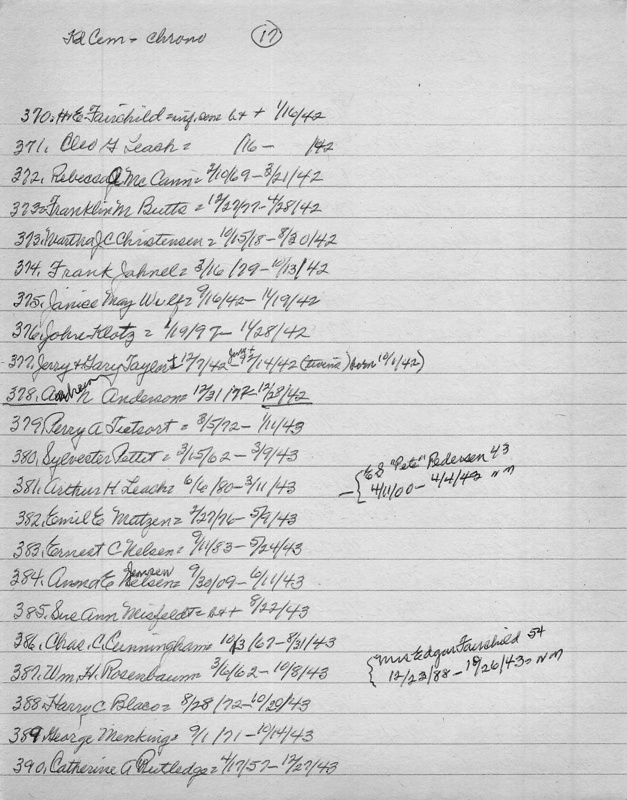 Cem - chrono 17
370. H.E. Fairchild = inf. son b+ + 1/16/42
371. Cleo F Leach = /16 - /42
372. Rebecca Q Mc Cann = 3/10/69 - 3/21/42
373 = Franklin M Butts = 12/27/77 - 4/28/42
373. Martha J.C Christensen = 10/15/18 - 8/30/42
374. Frank Jahnel = 3/16/79 - 10/13/42
375. Janice May Wulf = 9/16/42 - 11/19/42
376. John Klotz = 1/19/97 - 11/28/42
377. Jerry + Gary Taylor + 12/7/42 - Jerry + 12/14/42 (twins) born 10/1/42)
378. Andrew N Anderson = 12/31/78 - 12/28/42
379. Perry A Tietsort = 3/5/72 - 1/11/43
380. Sylvester Pettit = 3/15/62 - 3/9/43
381. Arthur H Leach = 6/6/80 - 3/11/43
{ E S "Pete" Pedersen 43
4/11/00 - 4/4/43 N M
382. Emil E Matzen = 2/27/76 - 5/9/43
383. Ernest C Nelsen = 9/11/83 - 5/24/43
384. Anna E Jensen Nelsen = 9/30/09 - 6/11/43
385. Sue Ann Misfeldt = b+ + 8/22/43
386. Chas. C. Cunningham = 10/3/67 - 8/31/43
387. Wm. H. Rosenbaum = 3/6/62 - 10/8/43
{ Mrs Edgar Fairchild 54
12/23/88 - 10/26/43 = N M
388. Harry C Blaco = 8/28/72 - 10/29/43
389. George Menking = 9/1/71 - 10/14/43
390. Catherine A Rutledge = 4/17/57 - 12/27/43